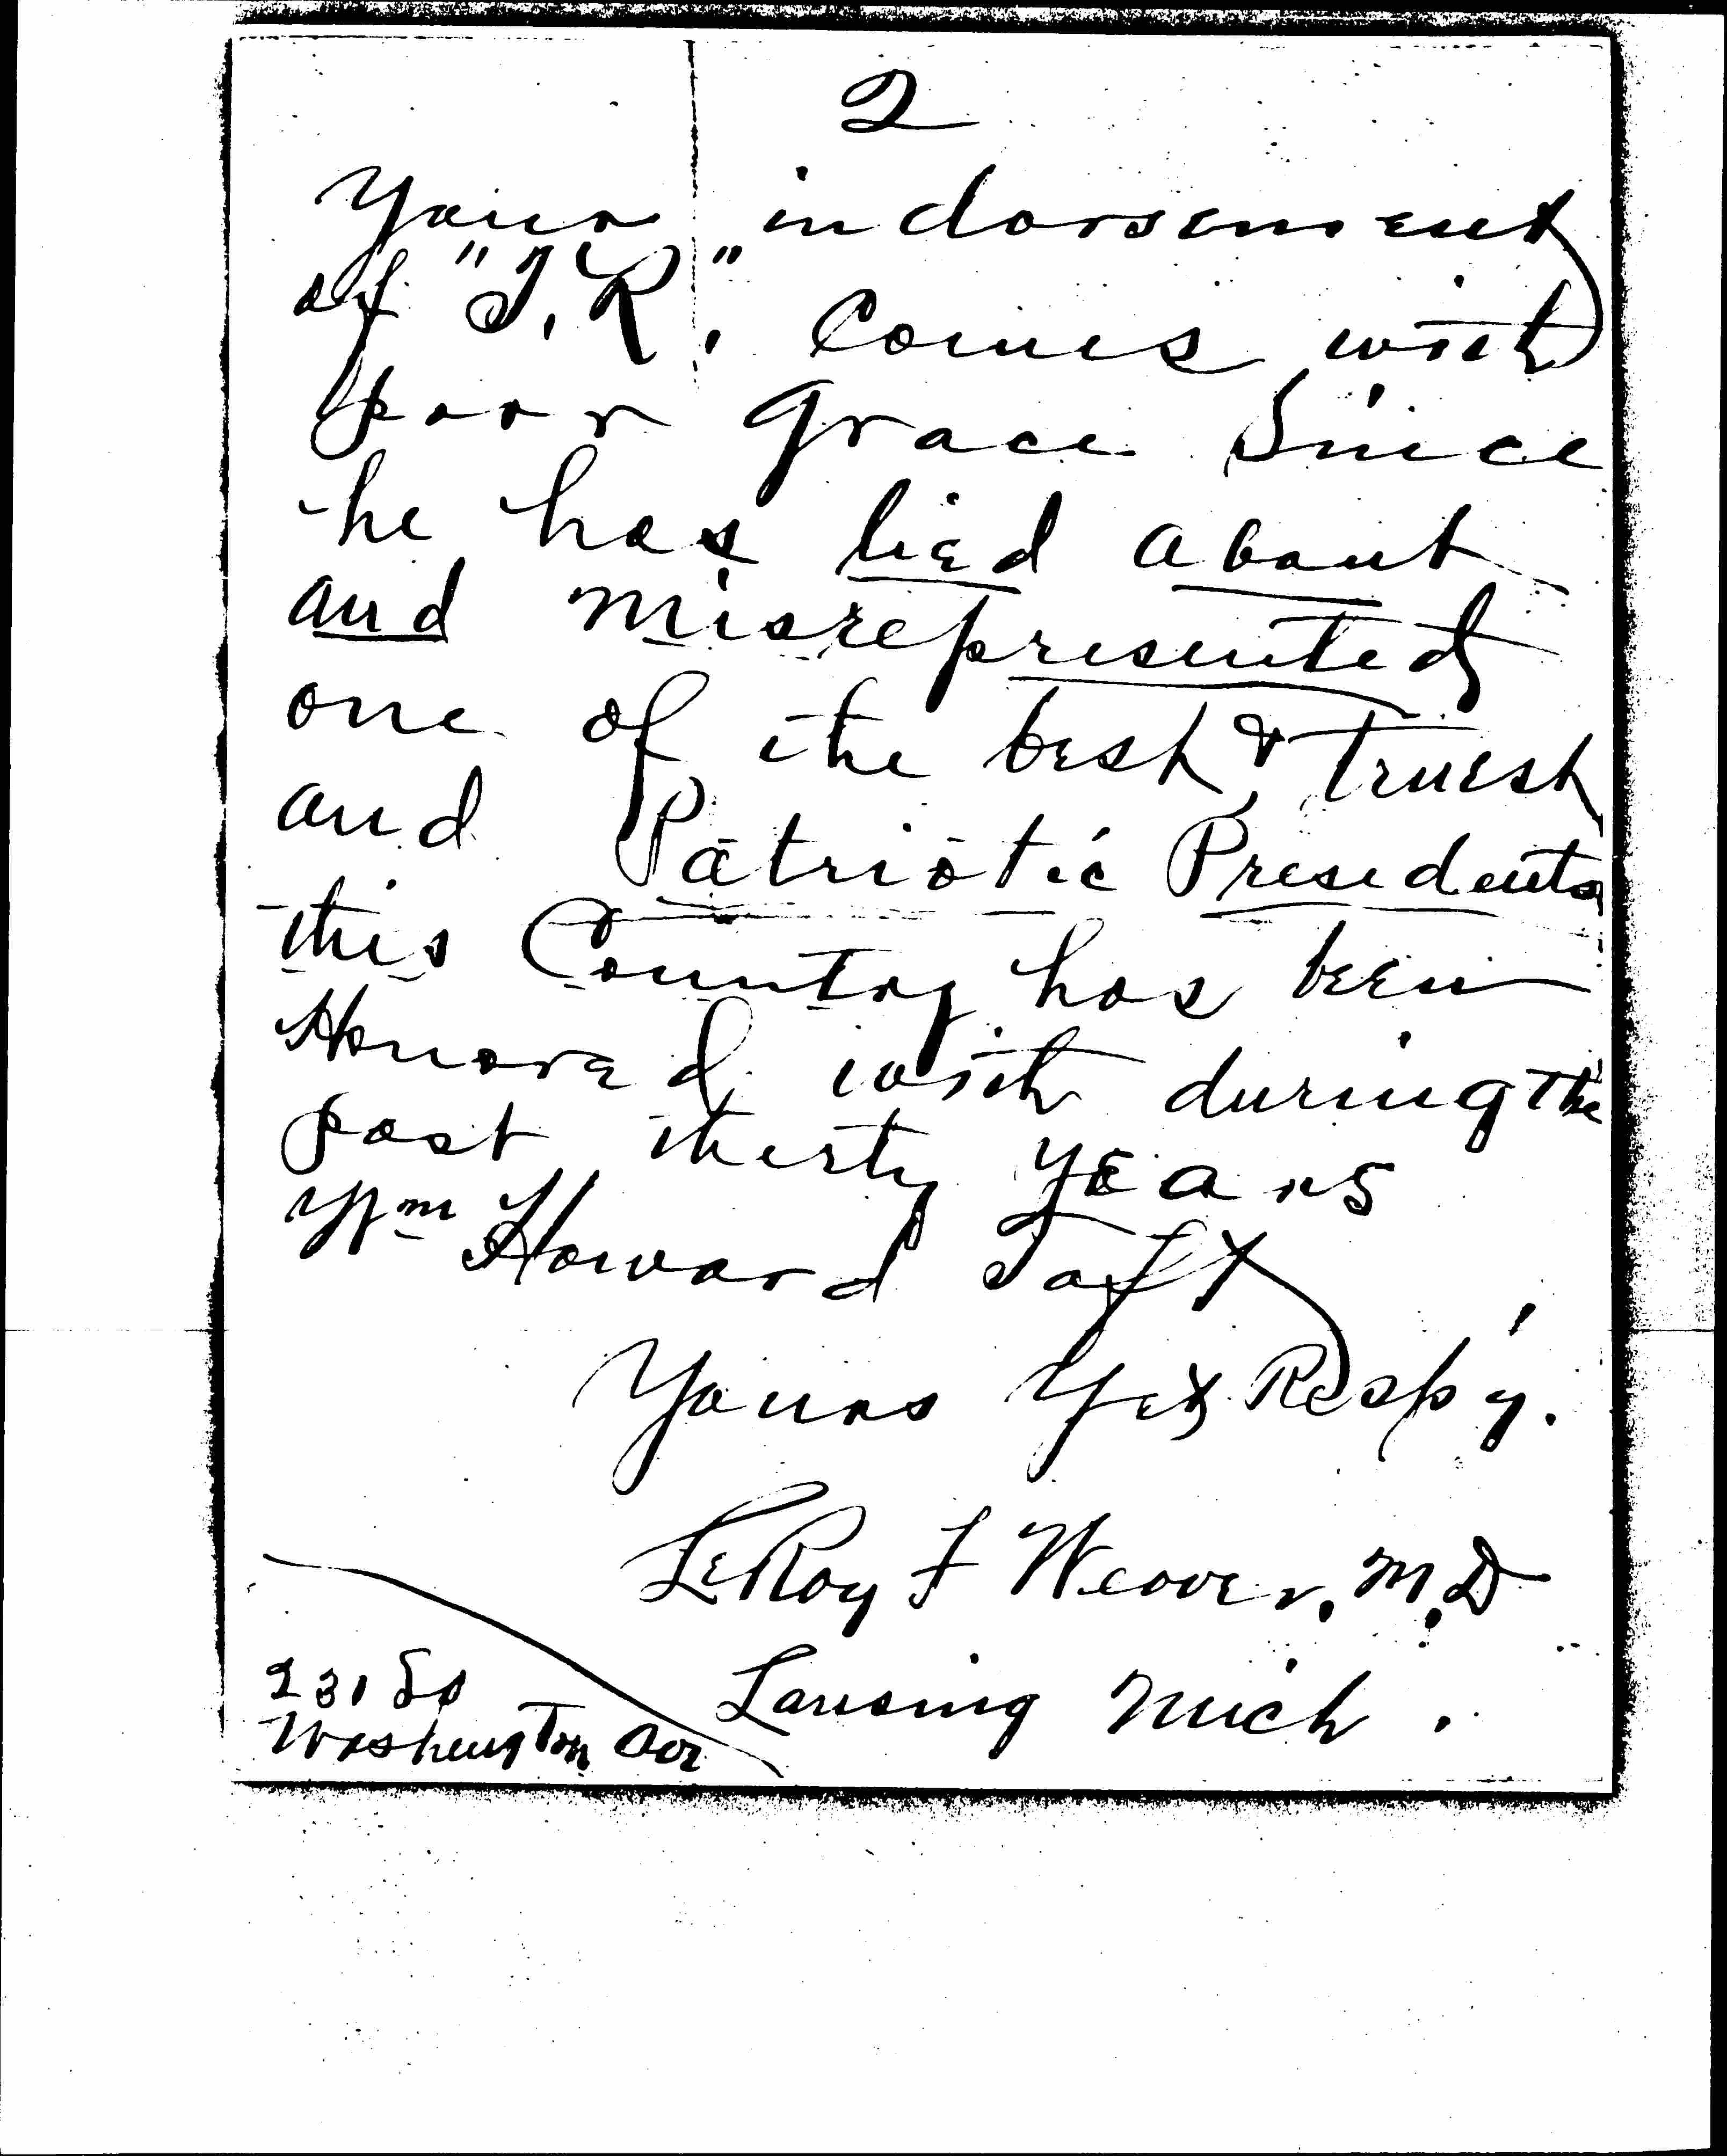 2
Your indorsement
of "T.R.", Comes with
poor grace Since
he has lied about
and misrepresented
one of the best & truest
and Patriotic Presidents
this Country has been
Honored with during the
past thirty years
Wm Howard Taft
Yours Yet Resp'y.
LeRoy F Weaver, M.D
Lansing Mich.
231 So
Washington Ave